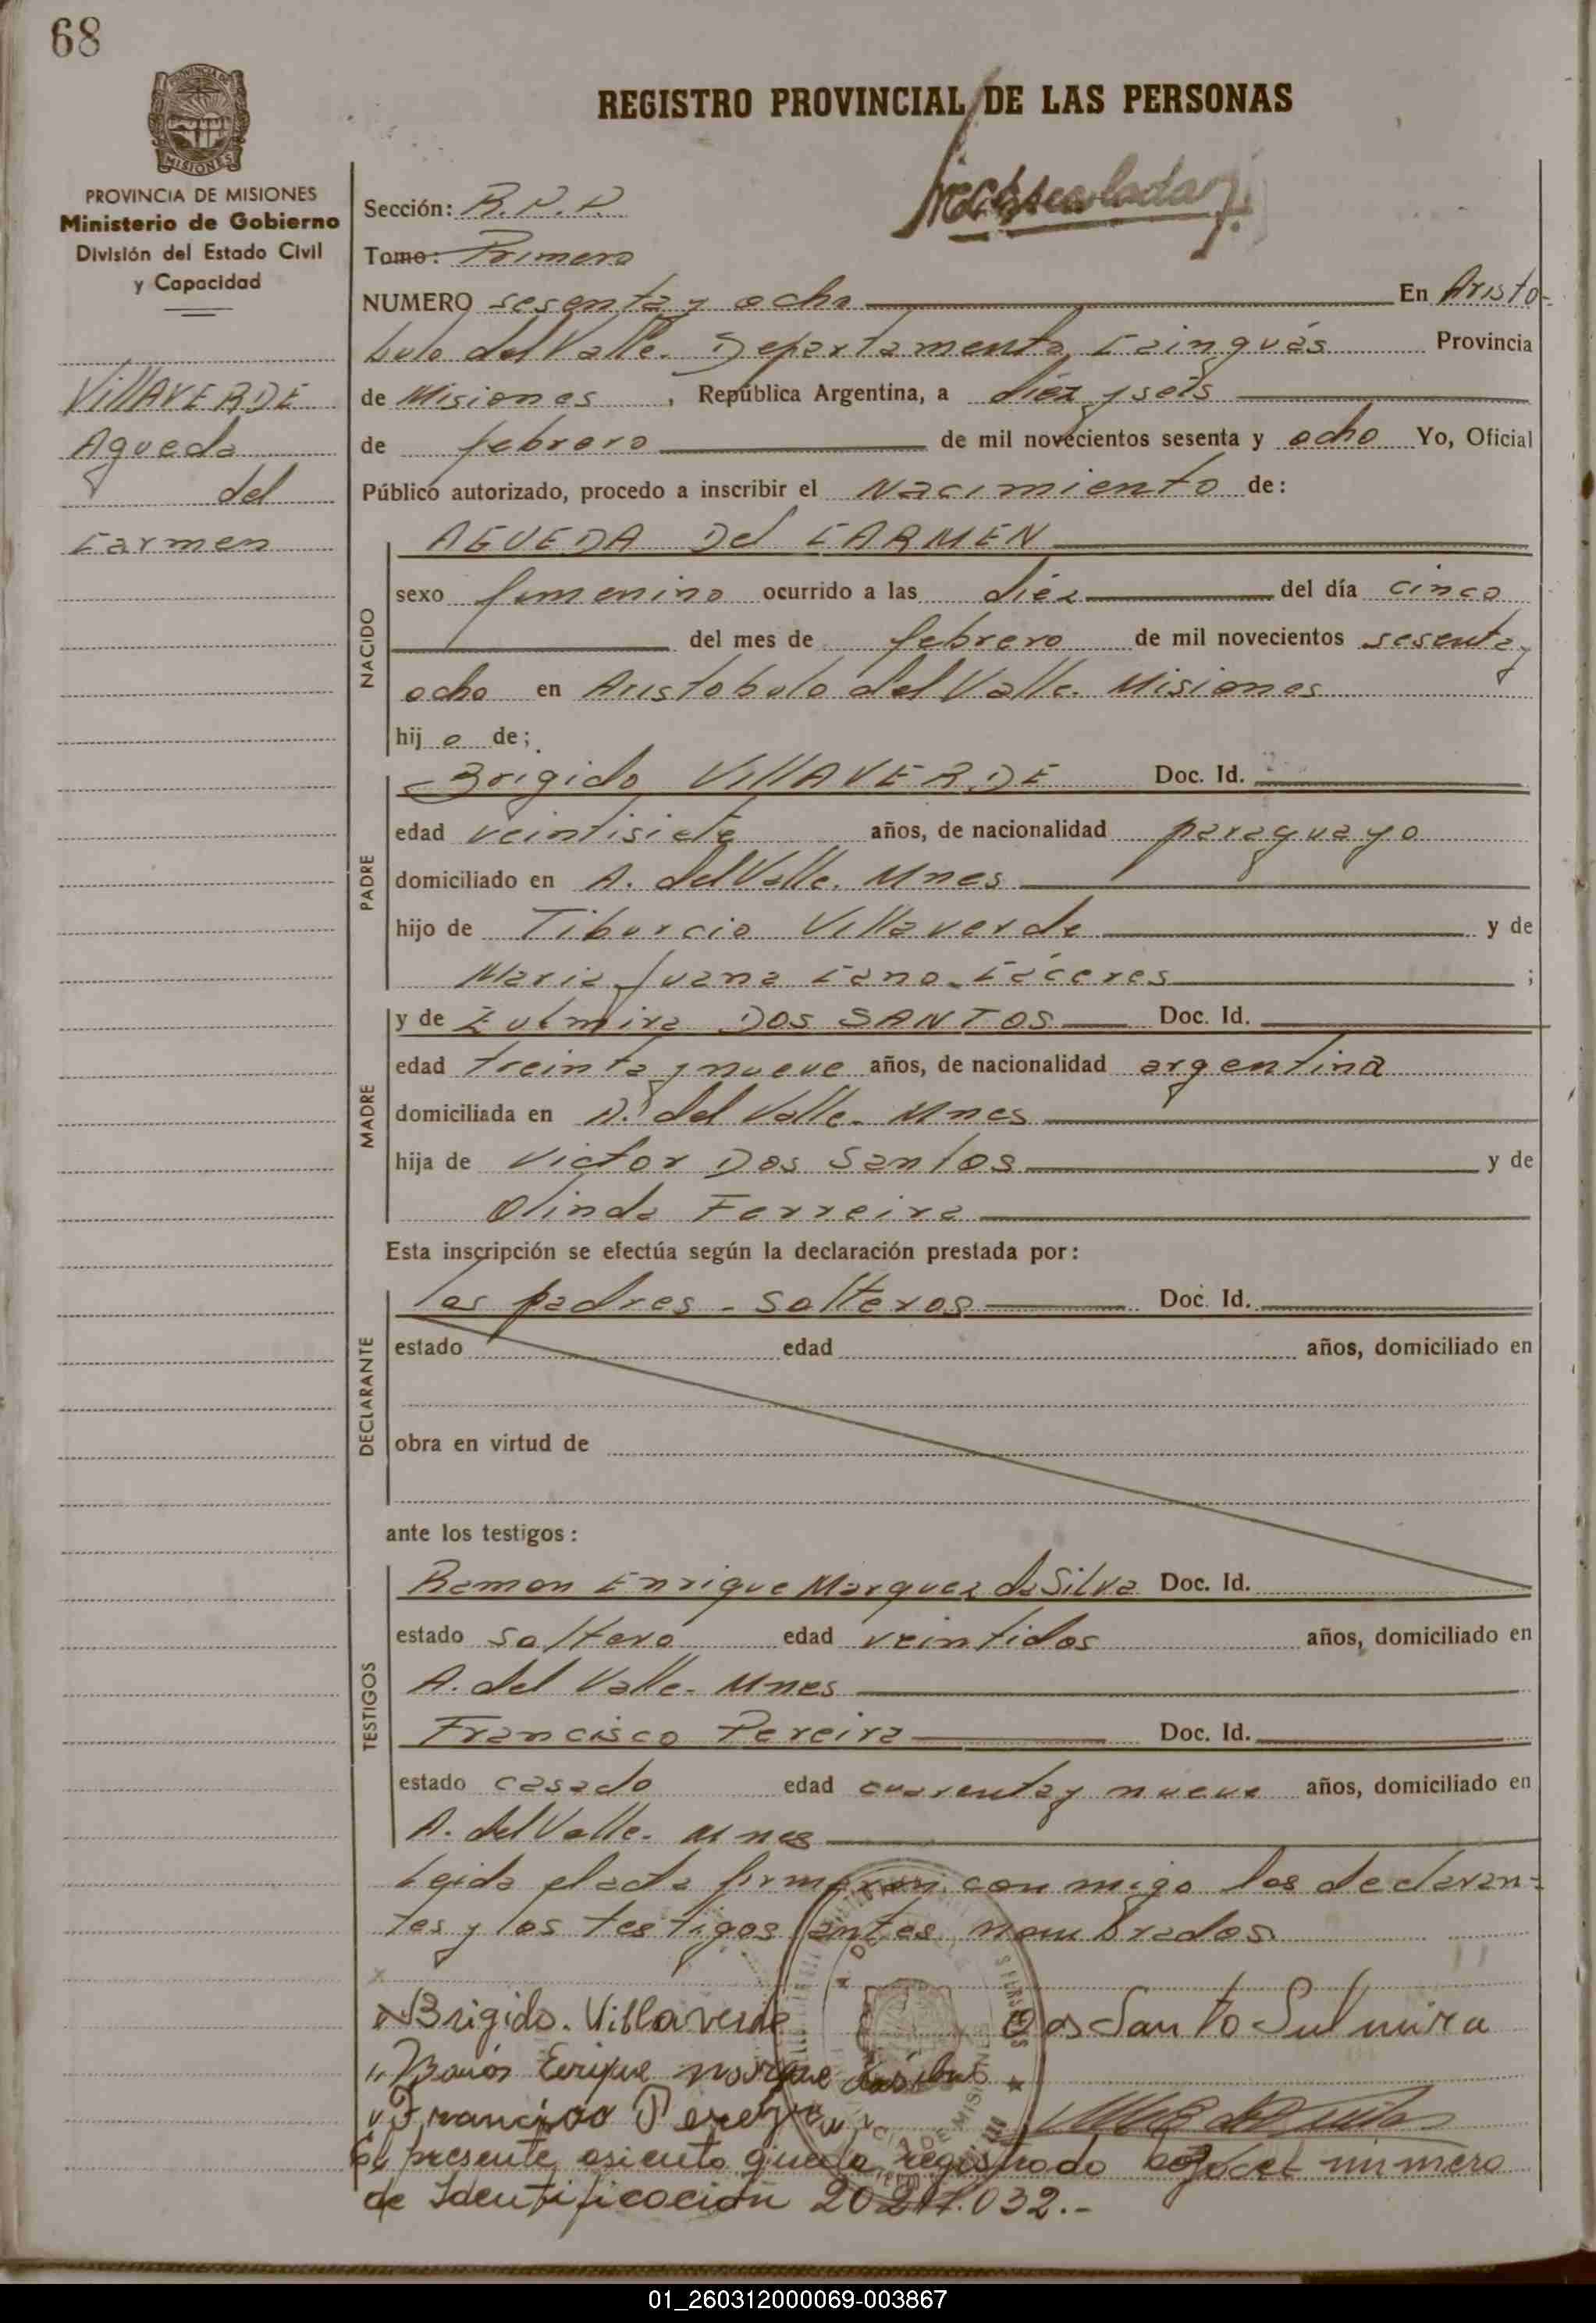 68
PROVINCIA DE
MISIONES
PROVINCIA DE MISIONES
Ministerio de Gobierno
División del Estado Civil
y Capacidad
VillAVERDE
Agueda
del
Carmen
REGISTRO PROVINCIAL DE LAS PERSONAS
Sección: R.P.P.
Tomo: Primero
NUMERO sesenta y ocho En Aristo-
bulo del Valle. Departamento Cainguás Provincia
de Misiones, República Argentina, a diez y seis
de febrero de mil novecientos sesenta y ocho Yo, Oficial
Público autorizado, procedo a inscribir el Nacimiento de:
NACIDO
AGUEDA Del CARMEN
sexo femenino ocurrido a las diéz del día cinco
del mes de febrero de mil novecientos sesenta y
ocho en Aristobulo del Valle. Misiones
hij o de;
PADRE
Brigido VillAVERDE Doc. Id.
edad veintisiete años, de nacionalidad paraguayo
domiciliado en A. del Valle. Mnes
hijo de Tiburcio Villaverde y de
Maria Juana Cano Cáceres ;
MADRE
y de Zulmira DOS SANTOS Doc. Id.
edad treinta y nueve años, de nacionalidad argentina
domiciliada en A. del Valle. Mnes
hija de Victor Dos Santos y de
Olinda Ferreira
Esta inscripción se efectúa según la declaración prestada por:
DECLARANTE
los padres - solteros Doc. Id.
estado edad años, domiciliado en
obra en virtud de
ante los testigos:
TESTIGOS
Ramon Enrique Marquez da Silva Doc. Id.
estado soltero edad veintidos años, domiciliado en
A. del Valle. Mnes
Francisco Pereira Doc. Id.
estado casado edad cuarenta y nueve años, domiciliado en
A. del Valle. Mnes
Leida el acta firmaron conmigo los declaran-
tes y los testigos antes nombrados.
Brigido. Villaverde Dos Santo Sulmira
Enrique
Francisco
El presente asiento queda registrado bajo el numero
de Identificación 20.217.032.-
01_260312000069-003867